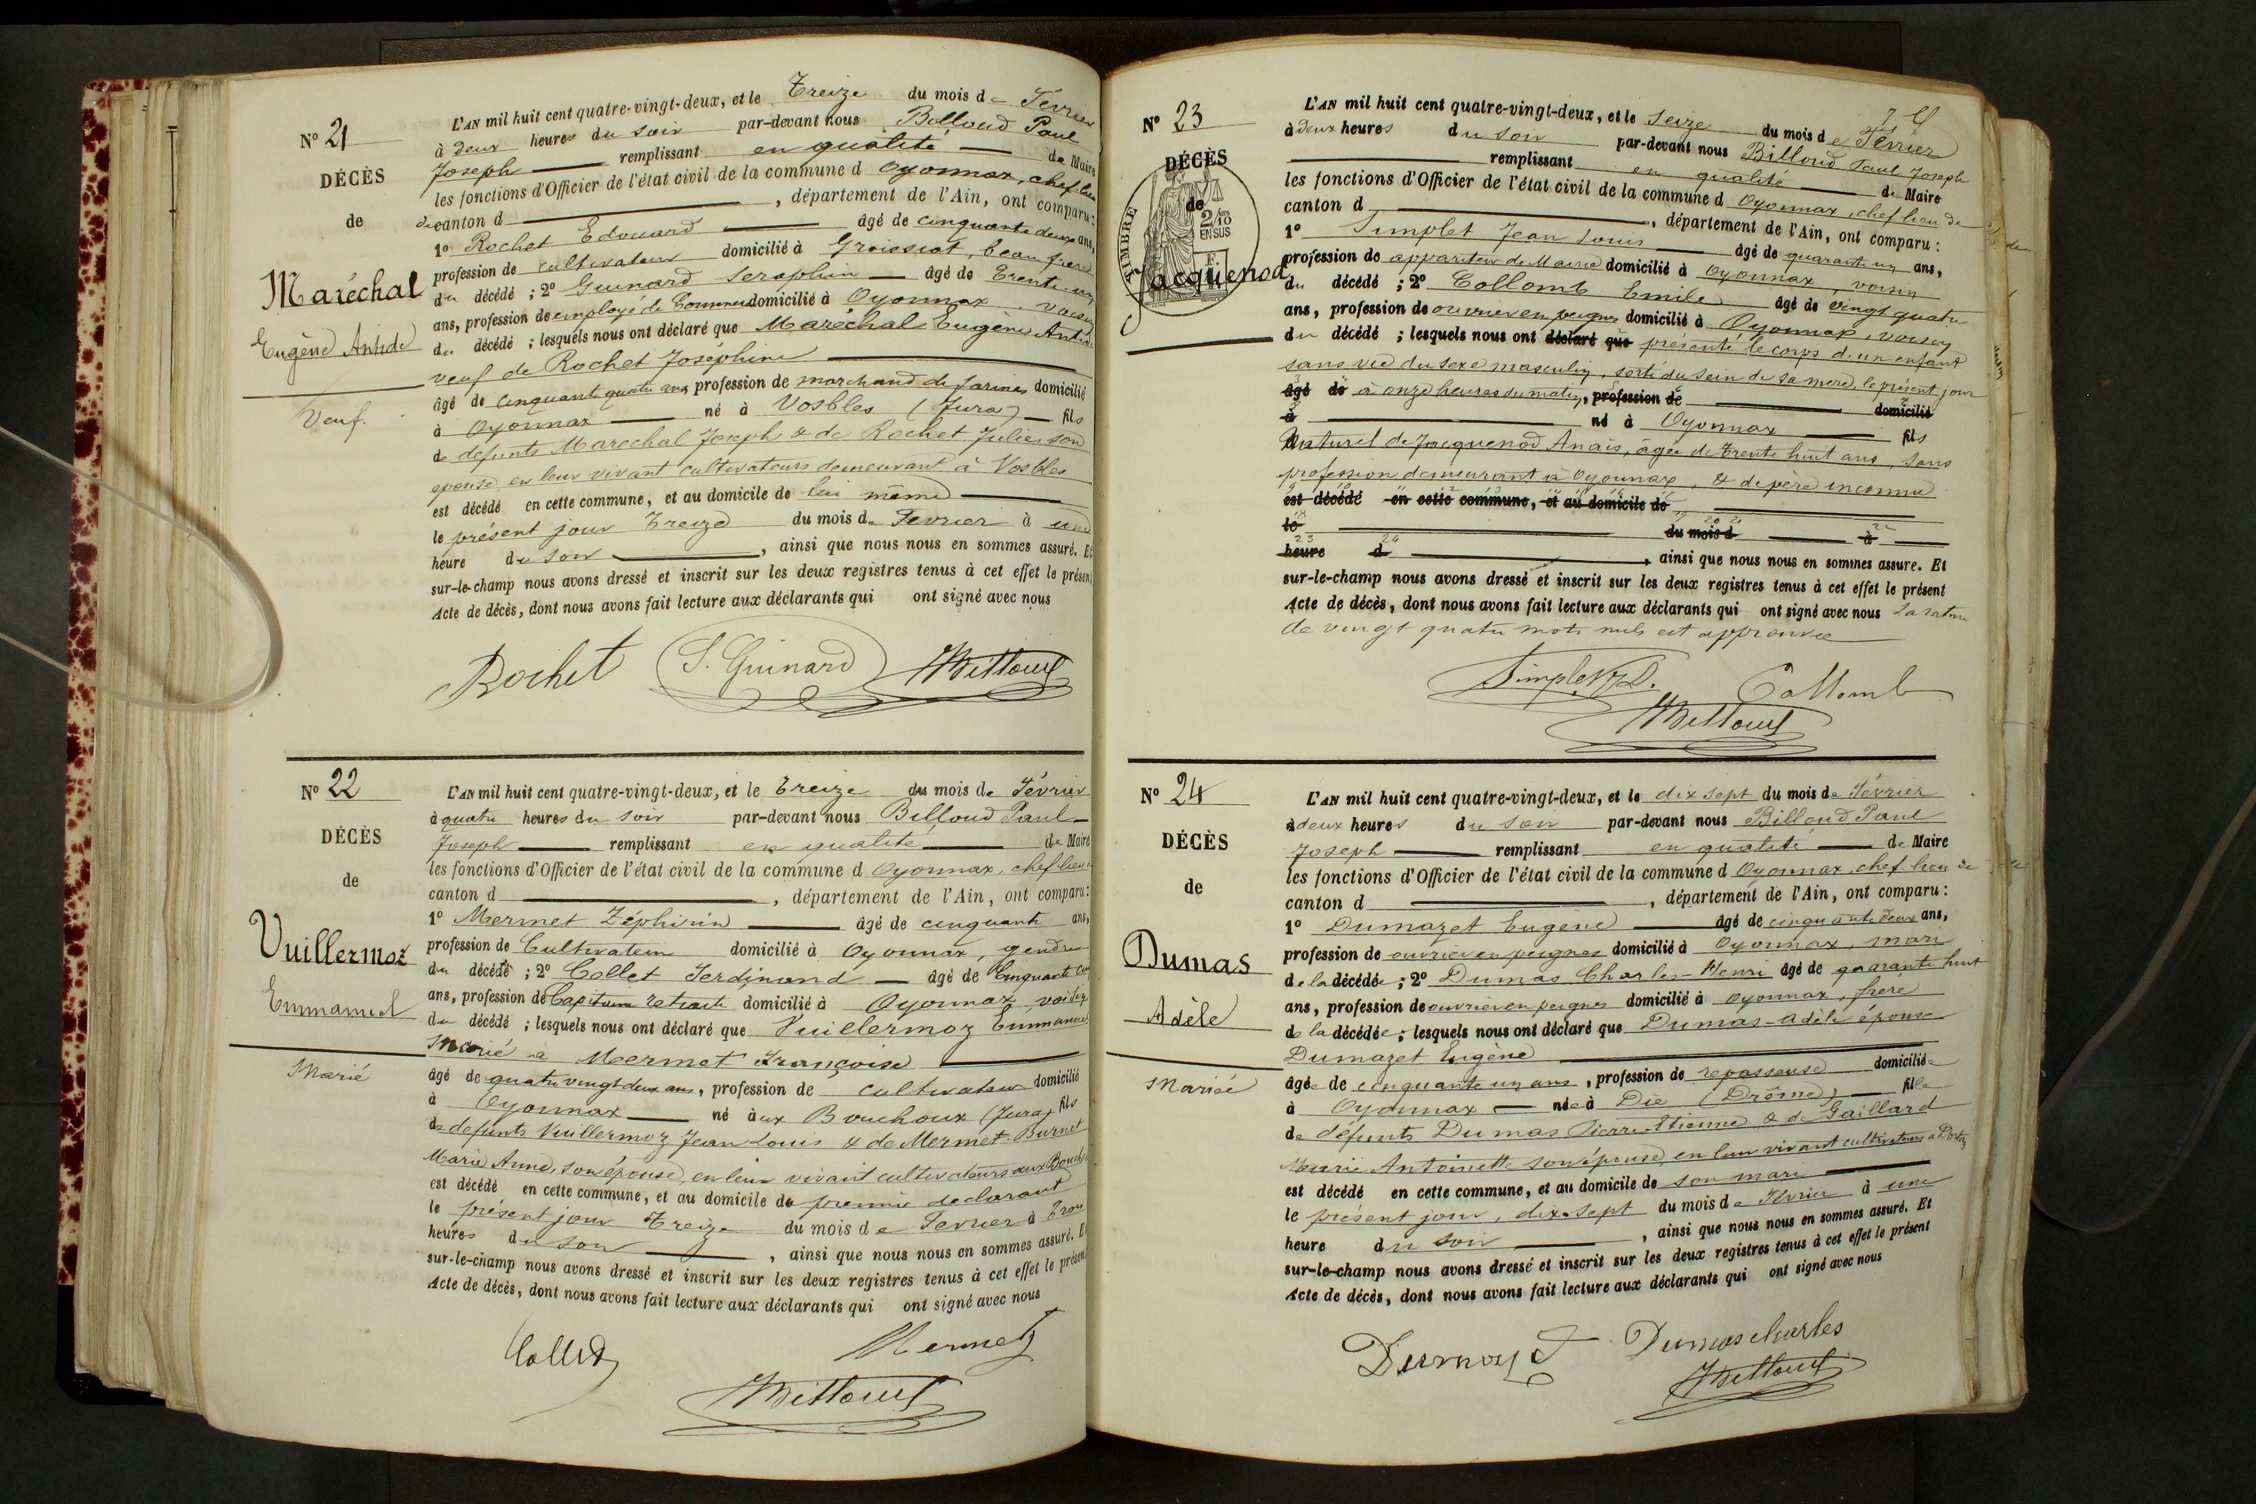 N° 21
DÉCÈS
de
Maréchal
Eugène Antide
Veuf.
L'AN mil huit cent quatre-vingt-deux, et le Treize du mois de Février
à deux heures du soir par-devant nous Billoud Paul
Joseph remplissant en qualité de Maire
les fonctions d'Officier de l'état civil de la commune d Oyonnax, chef lieu
de canton d , département de l'Ain, ont comparu :
1° Rochet Edouard âgé de cinquante deux ans,
profession de cultivateur domicilié à Groissiat, beau frère
du décédé ; 2° Guinard Séraphin âgé de Trente un
ans, profession de employé de Commerce domicilié à Oyonnax, voisin
du décédé ; lesquels nous ont déclaré que Maréchal Eugène Antide
veuf de Rochet Joséphine
âgé de cinquante quatre ans, profession de marchand de farines domicilié
à Oyonnax né à Vosbles (Jura) fils
de défunts Maréchal Joseph & de Rochet Julie son
épouse en leur vivant cultivateurs demeurant à Vosbles
est décédé en cette commune, et au domicile de lui même
le présent jour Treize du mois de Février à une
heure du soir , ainsi que nous nous en sommes assuré. Et
sur-le-champ nous avons dressé et inscrit sur les deux registres tenus à cet effet le présent
Acte de décès, dont nous avons fait lecture aux déclarants qui ont signé avec nous
Rochet S. Guinard Billoud
N° 22
DÉCÈS
de
Vuillermoz
Emmanuel
Marié
L'AN mil huit cent quatre-vingt-deux, et le Treize du mois de Février
à quatre heures du soir par-devant nous Billoud Paul
Joseph remplissant en qualité de Maire
les fonctions d'Officier de l'état civil de la commune d Oyonnax, chef lieu
canton d , département de l'Ain, ont comparu :
1° Mermet Zéphirin âgé de cinquante ans,
profession de Cultivateur domicilié à Oyonnax, gendre
du décédé ; 2° Collet Ferdinand âgé de Cinquante
ans, profession de Capitaine retraité domicilié à Oyonnax, voisin
du décédé ; lesquels nous ont déclaré que Vuillermoz Emmanuel
Marié à Mermet Françoise
âgé de quatre vingt deux ans, profession de cultivateur domicilié
à Oyonnax né aux Bouchoux (Jura) fils
de défunts Vuillermoz Jean Louis & de Mermet-Burnet
Marie Anne, son épouse, en leur vivant cultivateurs aux Bouchoux
est décédé en cette commune, et au domicile de premier déclarant
le présent jour Treize du mois de Février à Trois
heures du soir , ainsi que nous nous en sommes assuré. Et
sur-le-champ nous avons dressé et inscrit sur les deux registres tenus à cet effet le présent
Acte de décès, dont nous avons fait lecture aux déclarants qui ont signé avec nous
Collet Mermet
Billoud
N° 23
DÉCÈS
de
TIMBRE
2/10
EN SUS
Jacquenod
L'AN mil huit cent quatre-vingt-deux, et le seize du mois de Février
à deux heures du soir par-devant nous Billoud Paul Joseph
remplissant en qualité de Maire
les fonctions d'Officier de l'état civil de la commune d Oyonnax, chef lieu de
canton d , département de l'Ain, ont comparu :
1° Simplet Jean Louis âgé de quarante un ans,
profession de appariteur de Mairie domicilié à Oyonnax, voisin
du décédé ; 2° Collomb Emile âgé de vingt quatre
ans, profession de ouvrier en peignes domicilié à Oyonnax, voisin
du décédé ; lesquels nous ont déclaré que présenté le corps d'un enfant
sans vie du sexe masculin, sorti du sein de sa mère, le présent jour
âgé de à onze heures du matin, profession de domicilié
à né à Oyonnax fils
Naturel de Jacquenod Anaïs, âgée de Trente huit ans, sans
profession demeurant à Oyonnax, & de père inconnu
est décédé en cette commune, et au domicile de
le du mois d à
heure d , ainsi que nous nous en sommes assuré. Et
sur-le-champ nous avons dressé et inscrit sur les deux registres tenus à cet effet le présent
Acte de décès, dont nous avons fait lecture aux déclarants qui ont signé avec nous La rature
de vingt quatre mots nuls est approuvée
Simplet Collomb
Billoud
N° 24
DÉCÈS
de
Dumas
Adèle
Mariée
L'AN mil huit cent quatre-vingt-deux, et le dix sept du mois de Février
à deux heures du soir par-devant nous Billoud Paul
Joseph remplissant en qualité de Maire
les fonctions d'Officier de l'état civil de la commune d Oyonnax, chef lieu de
canton d , département de l'Ain, ont comparu :
1° Dumazet Eugène âgé de cinquante deux ans,
profession de ouvrier en peignes domicilié à Oyonnax, mari
de la décédée ; 2° Dumas Charles-Henri âgé de quarante huit
ans, profession de ouvrier en peignes domicilié à Oyonnax, frère
de la décédée ; lesquels nous ont déclaré que Dumas Adèle épouse
Dumazet Eugène
âgée de cinquante un ans, profession de repasseuse domiciliée
à Oyonnax née à Die (Drôme) fille
de défunts Dumas Pierre-Etienne & de Gaillard
Marie Antoinette son épouse, en leur vivant cultivateurs à
est décédé en cette commune, et au domicile de son mari
le présent jour, dix-sept du mois de Février à une
heure du soir , ainsi que nous nous en sommes assuré. Et
sur-le-champ nous avons dressé et inscrit sur les deux registres tenus à cet effet le présent
Acte de décès, dont nous avons fait lecture aux déclarants qui ont signé avec nous
Dumazet Dumas charles
Billoud